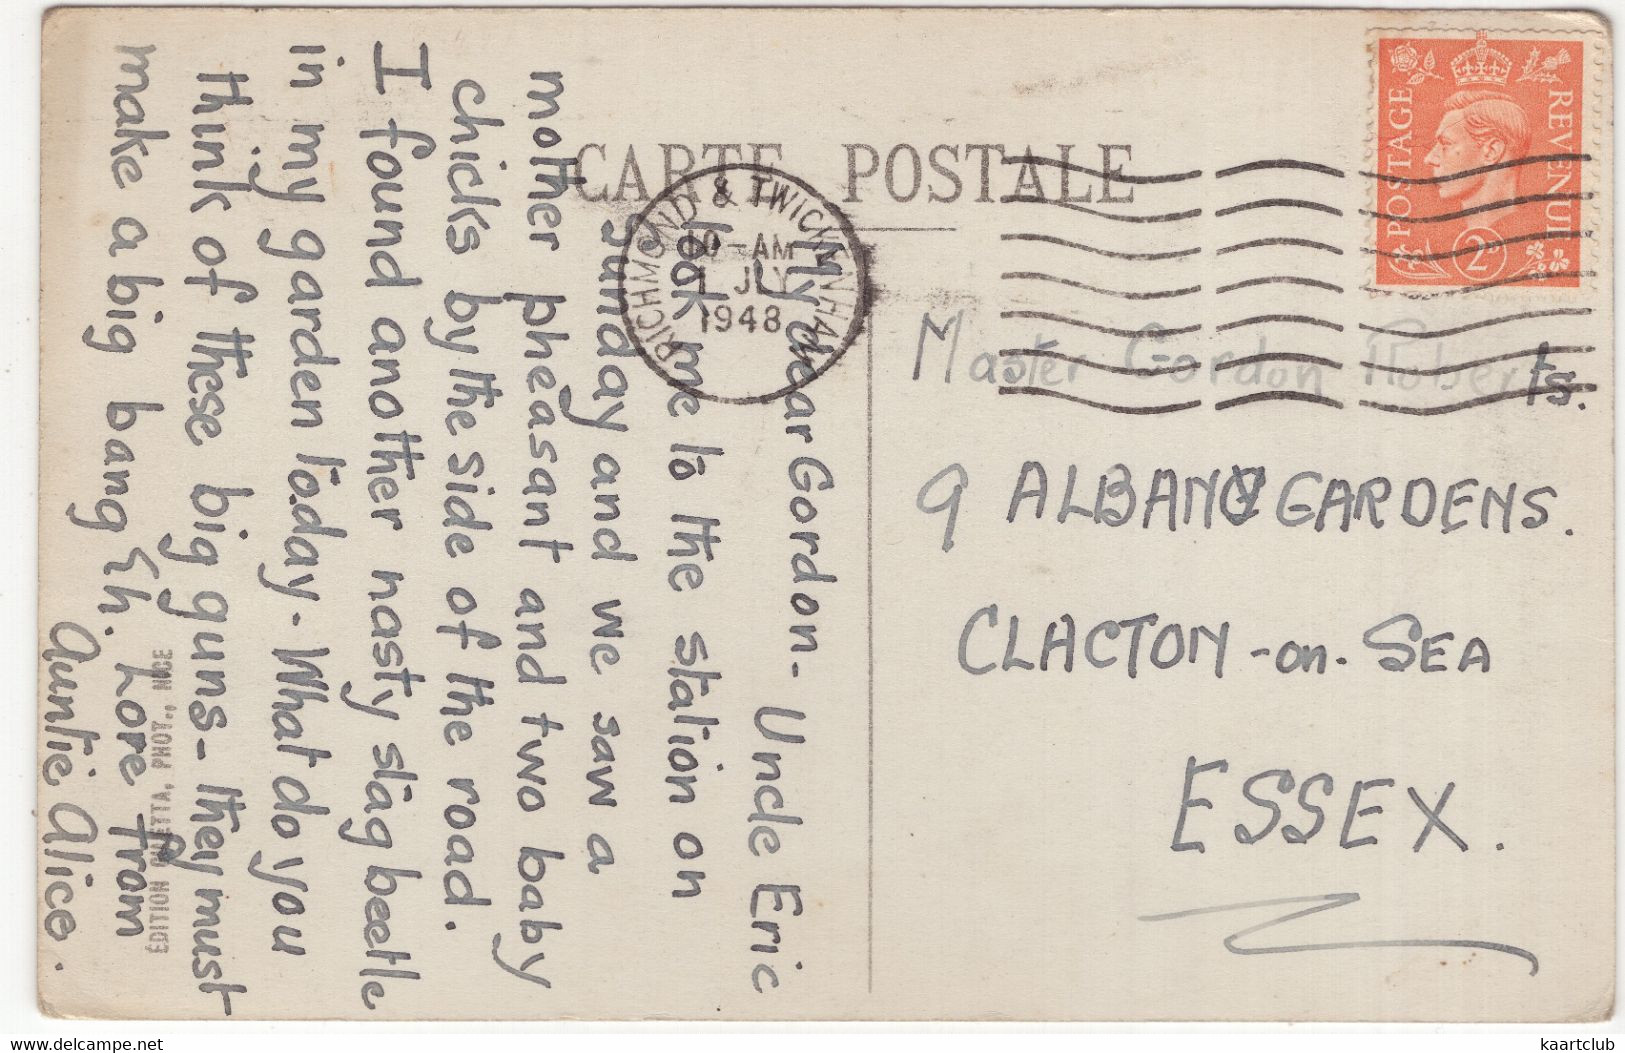 CARTE POSTALE
RICHMOND & TWICKENHAM
10 - AM
1 JLY
1948
POSTAGE
REVENUE
2D
My dear Gordon - Uncle Eric
took me to the station on
Sunday and we saw a
mother pheasant and two baby
chicks by the side of the road.
I found another nasty stag beetle
in my garden to.day - What do you
think of these big guns - they must
make a big bang Eh. Love from
Auntie Alice.
Master Gordon Roberts.
9 ALBANY GARDENS.
CLACTON - on - SEA
ESSEX.
delcampe.net
kaartclub